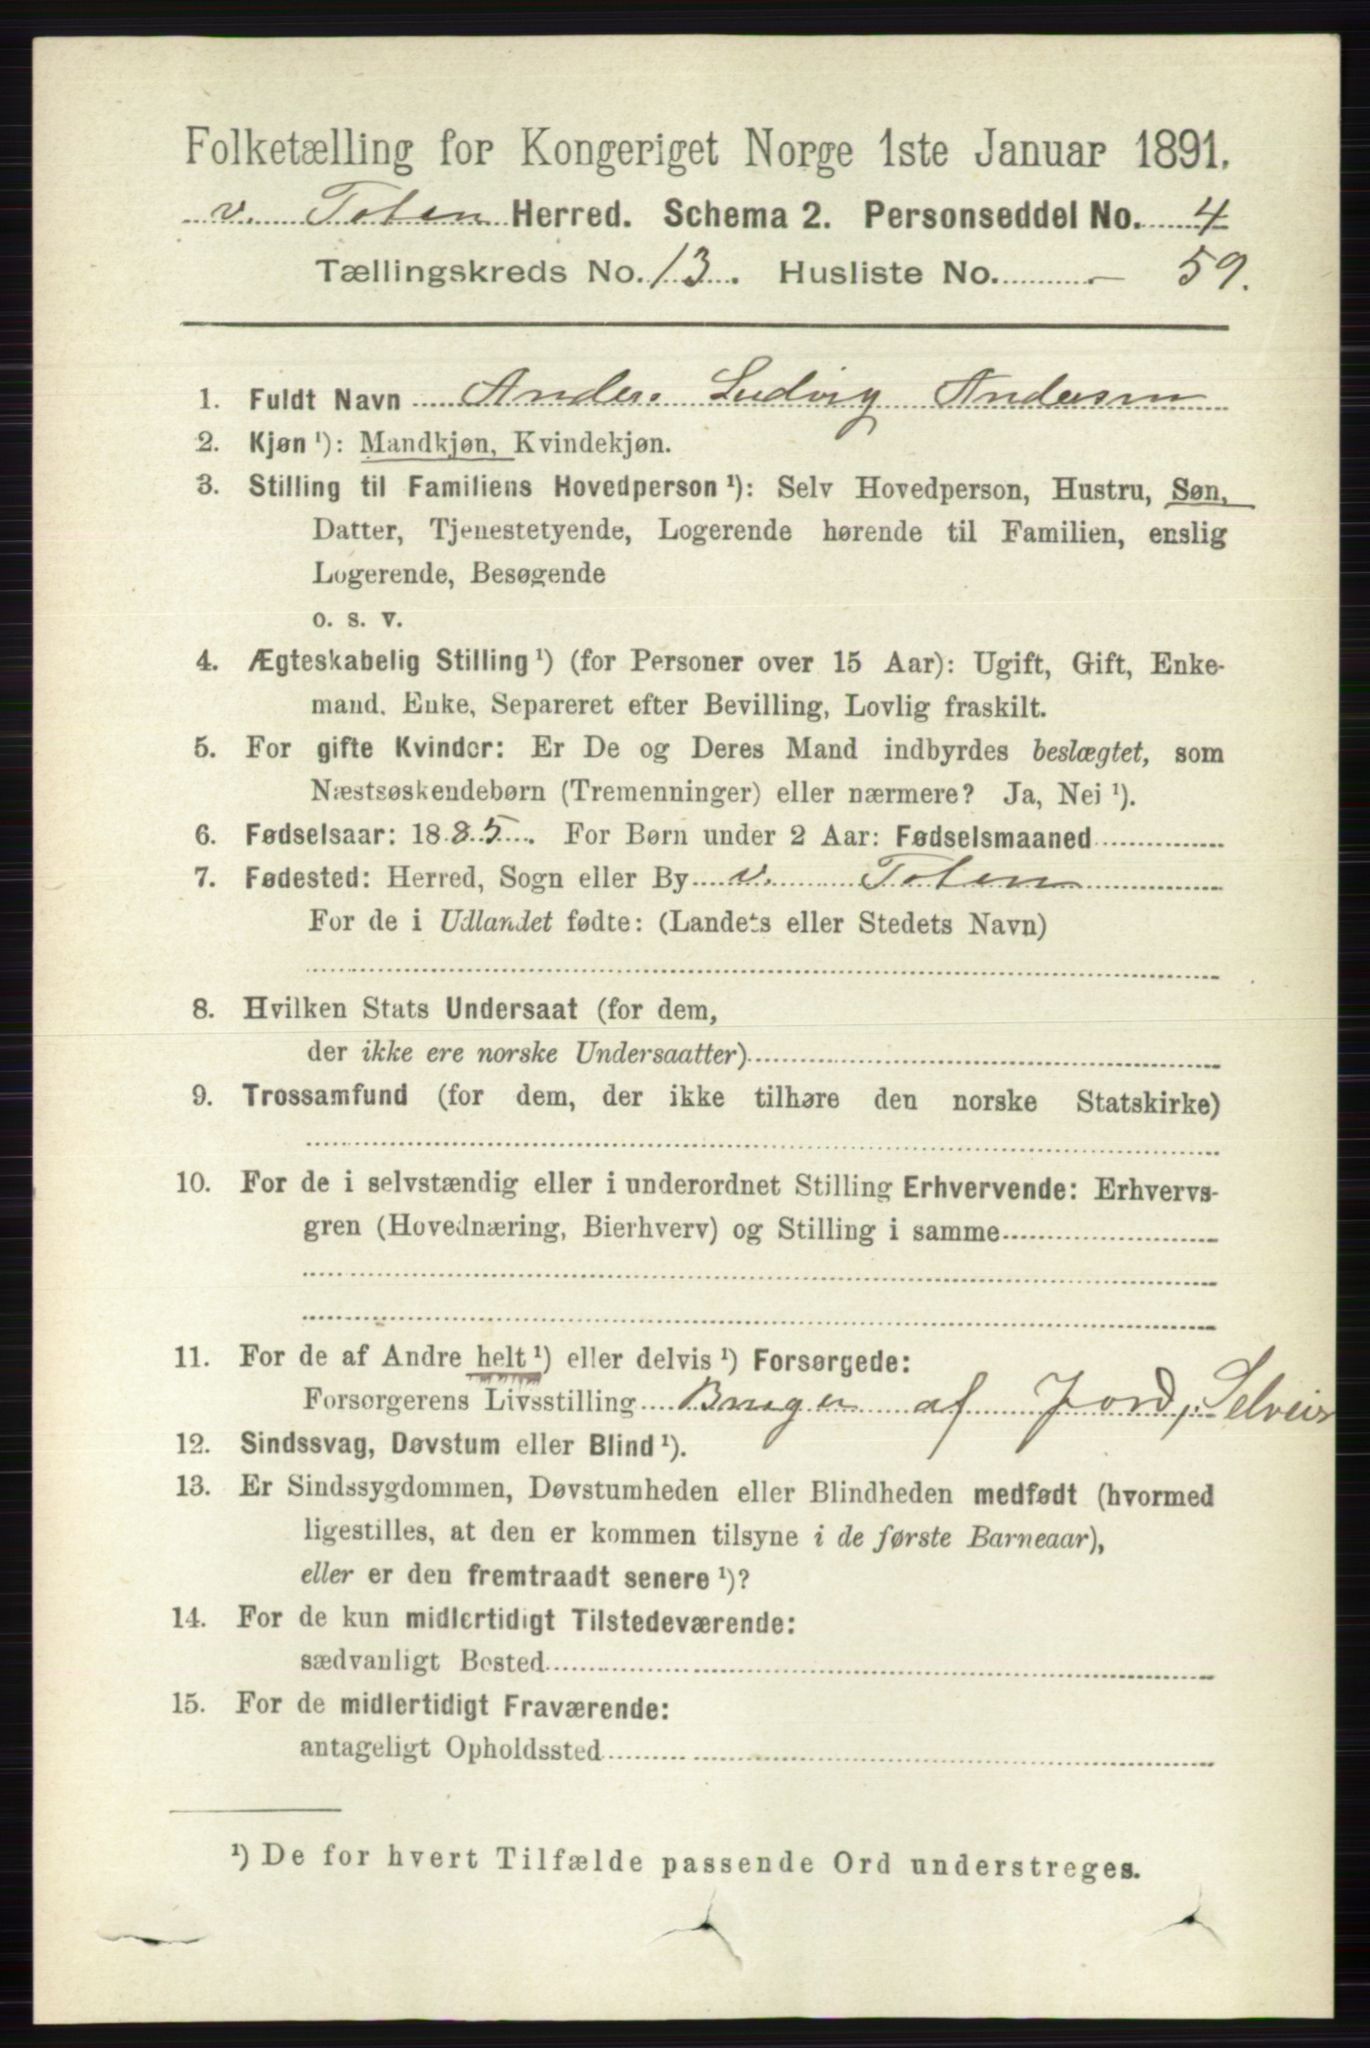 Folketælling for Kongeriget Norge 1ste Januar 1891.
v. Toten Herred. Schema 2. Personseddel No. 4
Tællingskreds No. 13. Husliste No. - 59.
1. Fuldt Navn Anders Ludvig Andersen
2. Kjøn ¹): Mandkjøn, Kvindekjøn.
3. Stilling til Familiens Hovedperson ¹): Selv Hovedperson, Hustru, Søn,
Datter, Tjenestetyende, Logerende hørende til Familien, enslig
Logerende, Besøgende
o. s. v.
4. Ægteskabelig Stilling ¹) (for Personer over 15 Aar): Ugift, Gift, Enke-
mand, Enke, Separeret efter Bevilling, Lovlig fraskilt.
5. For gifte Kvinder: Er De og Deres Mand indbyrdes beslægtet, som
Næstsøskendebørn (Tremenninger) eller nærmere? Ja, Nei ¹).
6. Fødselsaar: 1885. For Børn under 2 Aar: Fødselsmaaned
7. Fødested: Herred, Sogn eller By v. Toten
For de i Udlandet fødte: (Landets eller Stedets Navn)
8. Hvilken Stats Undersaat (for dem,
der ikke ere norske Undersaatter)
9. Trossamfund (for dem, der ikke tilhøre den norske Statskirke)
10. For de i selvstændig eller i underordnet Stilling Erhvervende: Erhvervs-
gren (Hovednæring, Bierhverv) og Stilling i samme
11. For de af Andre helt ¹) eller delvis ¹) Forsørgede:
Forsørgerens Livsstilling Bruger af Jord, Selveier
12. Sindssvag, Døvstum eller Blind ¹).
13. Er Sindssygdommen, Døvstumheden eller Blindheden medfødt (hvormed
ligestilles, at den er kommen tilsyne i de første Barneaar),
eller er den fremtraadt senere ¹)?
14. For de kun midlertidigt Tilstedeværende:
sædvanligt Bosted
15. For de midlertidigt Fraværende:
antageligt Opholdssted
¹) De for hvert Tilfælde passende Ord understreges.